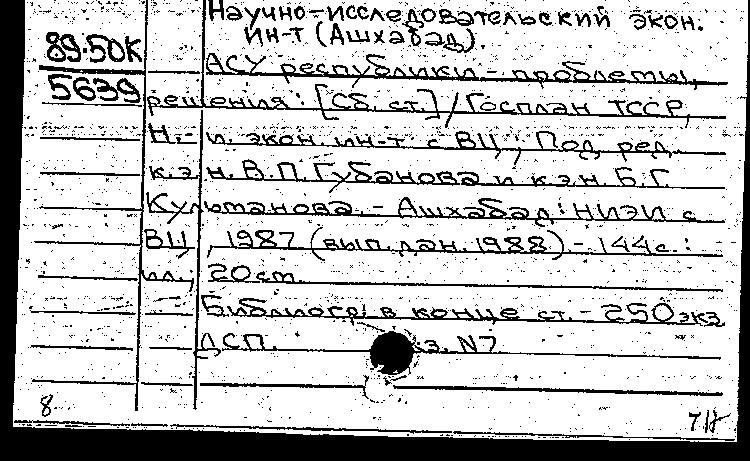 Научно-исследовательский экон.
ин-т (Ашхабад).
89-50К
АСУ республики - проблемы,
5639
решения: [Сб. ст.] / Госплан ТССР,
Н.-и. экон. ин-т с ВЦ; Под ред.
к.э.н. В.П. Губанова и к.э.н. Б.Г.
Культанова. - Ашхабад: НИЭИ с
ВЦ, 1987 (вып. дан. 1988) - 144 с.:
ил.; 20 см.
Библиогр. в конце ст. - 250 экз.
ДСП. з. N7
8